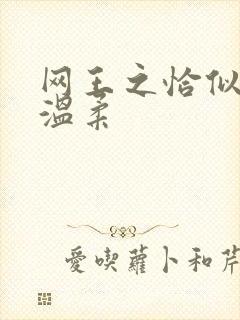 网王之恰似
温柔
愛喫蘿卜和芹